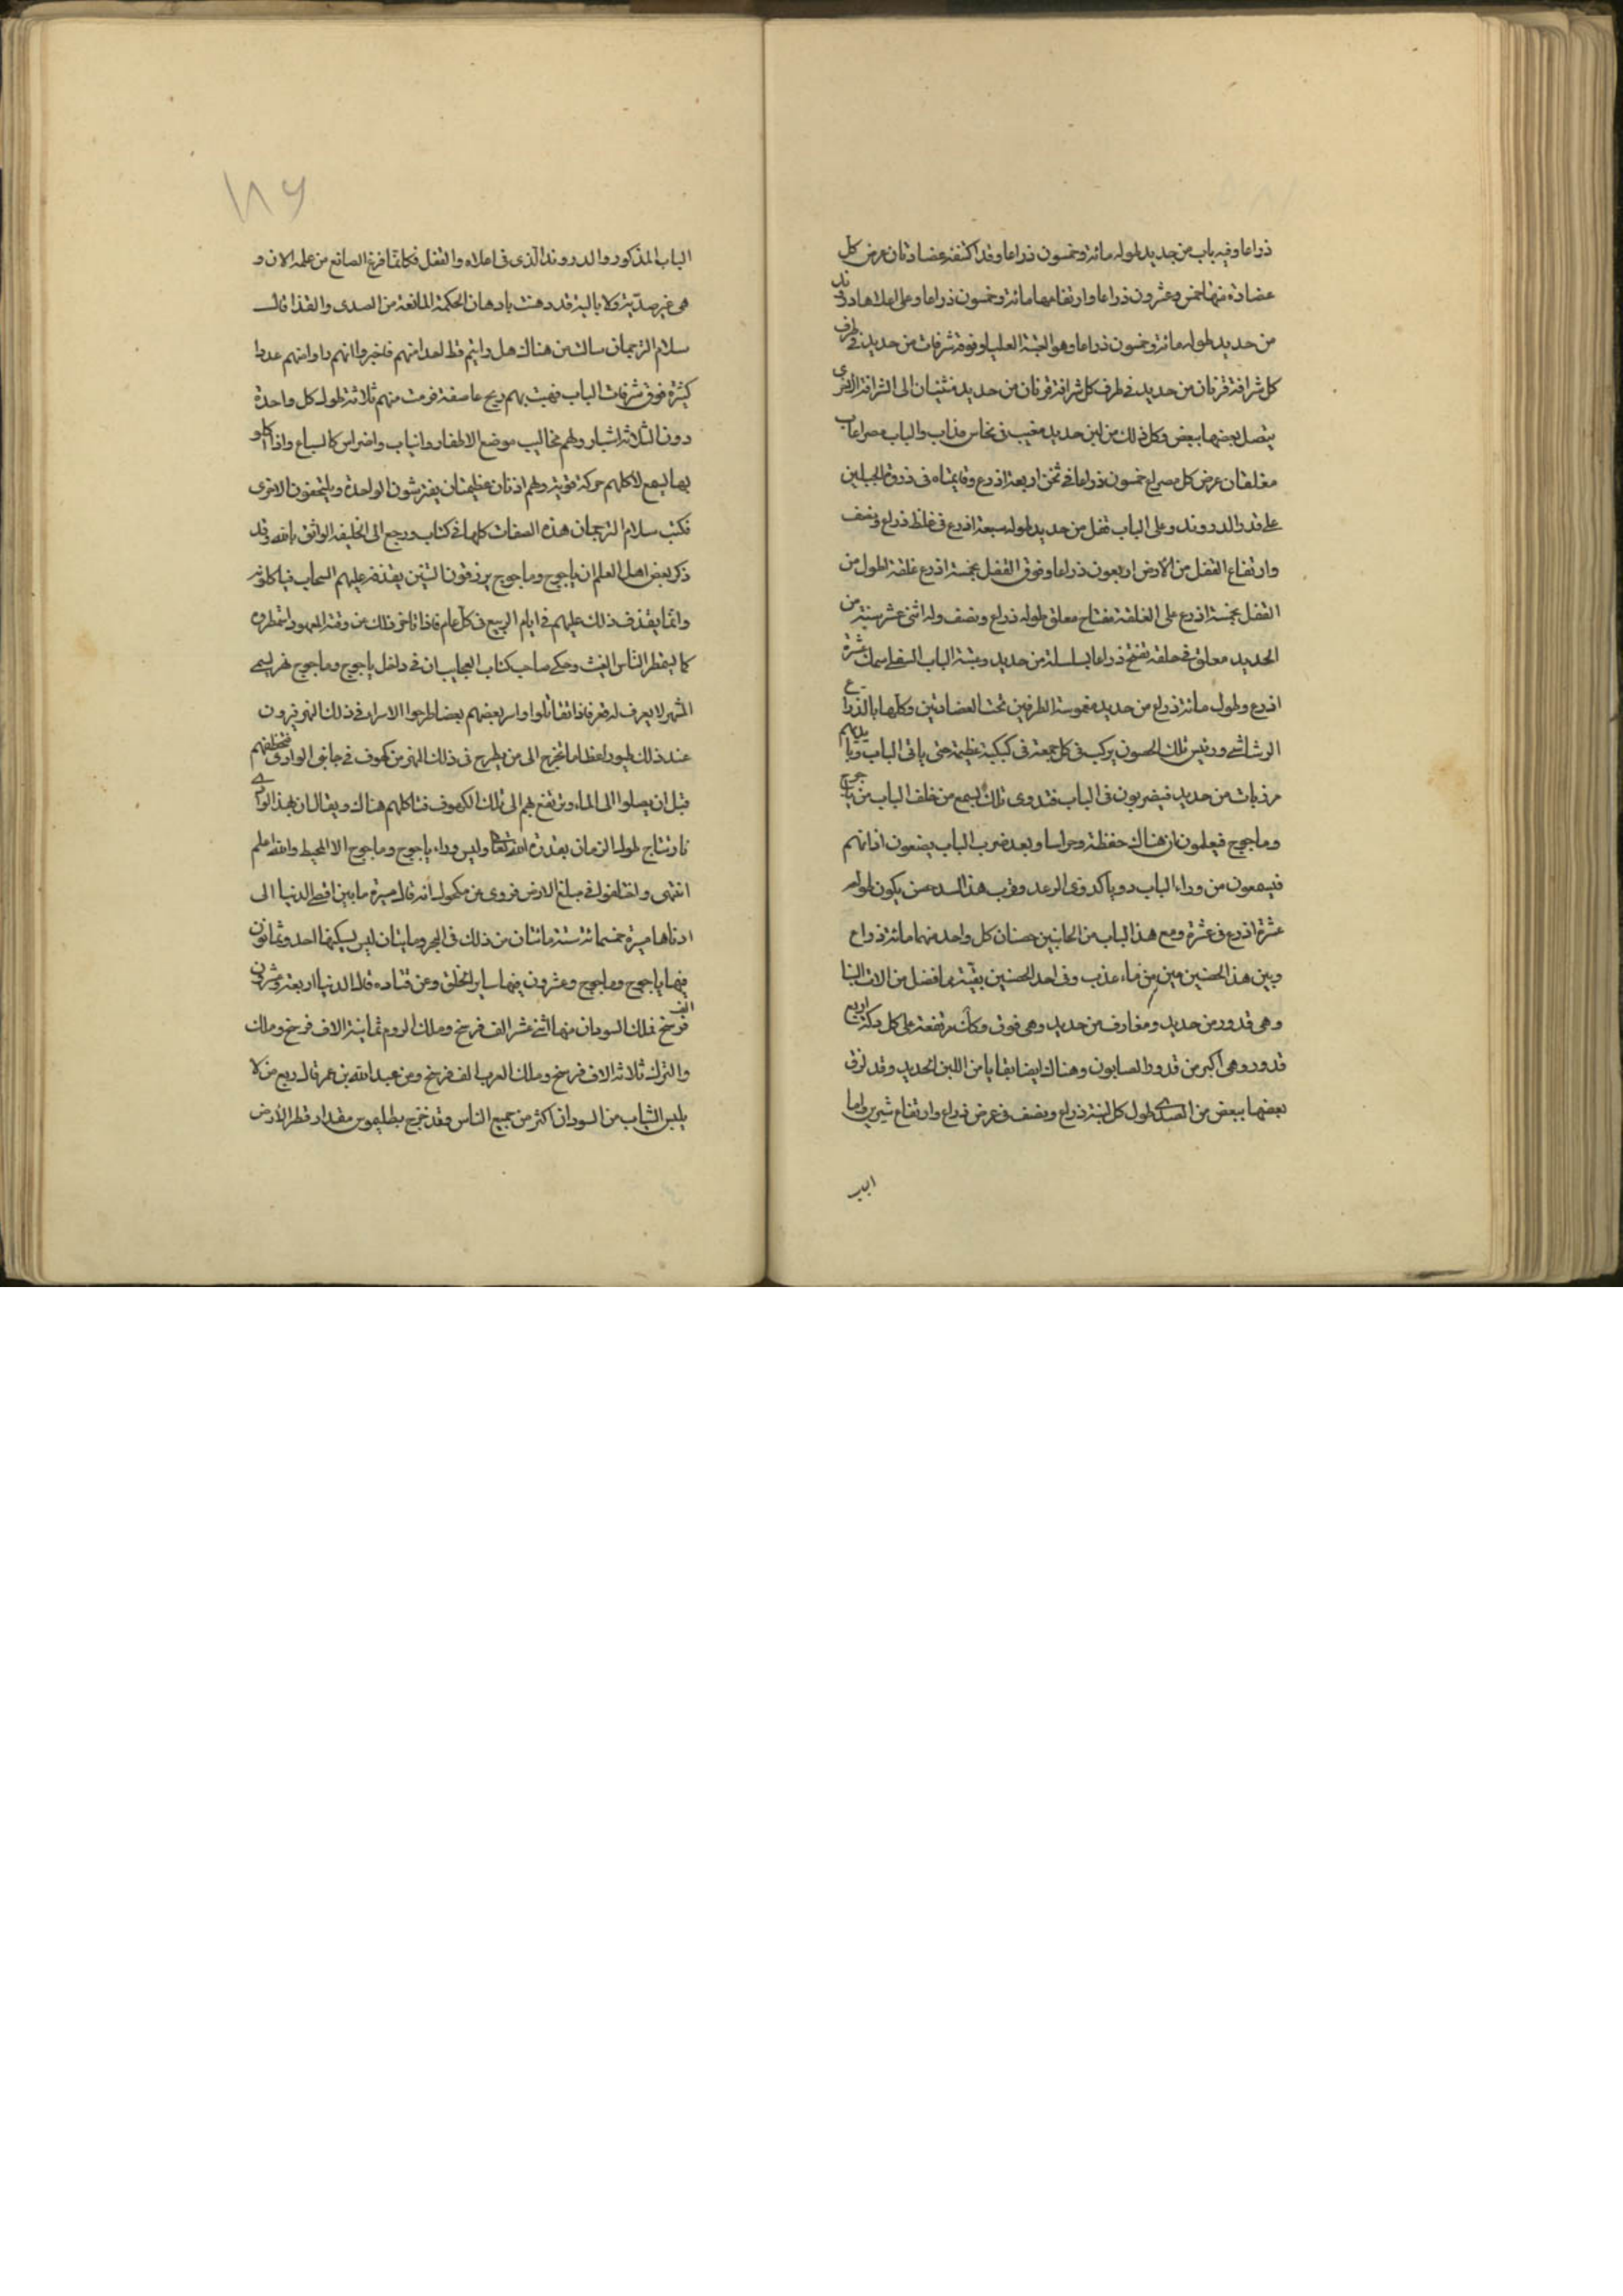 ذراعا وفيه باب من حديد طوله مائة وخمسون ذراعا وقد اكتنفه عضادتان عرض كل
عضادة منها خمس وعشرون ذراعا وارتفاعها مائة وخمسون ذراعا وعلى اعلاها دروند
من حديد طوله مائة وخمسون ذراعا وهو العتبة العليا وفوقه شرفات من حديد في طرف
كل شرافة قرنان من حديد في طرف كل شرافة قرنان من حديد منثنيان الى الشرافة الاخرى
يتصل بعضها ببعض وكل ذلك من لبن حديد مغيب في نحاس مذاب والباب مصراعان
مغلقان عرض كل مصراع خمسون ذراعا في ثخن اربعة اذرع وقايمتاه في ذروة الجبلين
على قدر الدروند وعلى الباب قفل من حديد طوله سبعة اذرع في غلظ ذراع ونصف
وارتفاع القفل من الارض اربعون ذراعا وفوق القفل بخمسة اذرع غلقة اطول من
القفل بخمسة اذرع على الغلقة مفتاح معلق طوله ذراع ونصف وله اثنى عشر سنة من
الحديد معلق في حلقة تفتح ذراعا بسلسلة من حديد وعتبة الباب السفلى سمك عشرة
اذرع وطول مائة ذراع من حديد مقوسة الطرفين تحت العضادتين وكلها بالذراع
الرشاشي ورئيس تلك الحصون يركب في كل جمعة في كبكبة عظيمة حتى ياتي الباب وبايديهم
مرزبات من حديد فيضربون في الباب فتدوى تلك ليسمع من خلف الباب من ياجوج
وماجوج فيعلمون ان هناك حفظة وحراسا وبعد ضرب الباب يضعون اذانهم
فيسمعون من وراء الباب دويا كدوى الرعد وقرب هذا السد حصن يكون طوله
عشرة اذرع في عشرة ومع هذا الباب من الجانبين حصنان كل واحد منهما مائة ذراع
وبين هذا الحصنين عين من ماء عذب وفي احد الحصنين بقية ما فضل من الات البنا
وهي قدور من حديد ومغارف من حديد وهي فوق دكات مرتفعة على كل دكة اربع
قدور وهي اكبر من قدور الصابون وهناك ايضا بقايا من اللبن الحديد وقد لزق
بعضها ببعض من الصدى طول كل لبنة ذراع ونصف في عرض ذراع وارتفاع شبرين واما
الباب
١٨٦
الباب المذكور والدروند الذى في اعلاه والقفل فكانما فرغ الصانع من عمله الان و
هي غير صدئة ولا بالية قد دهنت بادهان الحكمة المانعة من الصدى والقذا قال
سلام الترجمان سالت من هناك هل رايتم قط احدا منهم فاخبروا انهم راوا منهم عددا
كثيرة فوق شرفات الباب فهبت بهم ريح عاصفة فرمت منهم ثلاثة طول كل واحدة
دون الثلاثة اشبار ولهم مخاليب موضع الاظفار وانياب واضراس كالسباع واذا اكلوا
بها يسمع لاكلهم حركة قوية ولهم اذنان عظيمتان يفترشون الواحدة ويلتحفون الاخرى
فكتب سلام الترجمان هذه الصفات كلها في كتاب ورجع الى الخليفة الواثق بالله وقد
ذكر بعض اهل العلم ان ياجوج وماجوج يرزقون التنين يقذفه عليهم السحاب فياكلونه
وانما يقذف ذلك عليهم في ايام الربيع في كل عام فاذا تاخر ذلك عن وقته المعهود استمطروه
كما يستمطر الناس الغيث وحكى صاحب كتاب العجايب ان في داخل ياجوج وماجوج نهر يسمى
المشهر لا يعرف له قعر فاذا تقاتلوا واسر بعضهم بعضا طرحوا الاسرا في ذلك النهر فيرون
عند ذلك طيورا عظاما تخرج الى من يطرح في ذلك النهر من كهوف في جانبي الوادى فتخطفهم
قبل ان يصلوا الى الماء وترتفع بهم الى تلك الكهوف فتاكلهم هناك ويقال ان بهذا الوادى
نار تتاجج طول الزمان بقدرة الله تعالى وليس وراء ياجوج وماجوج الا المحيط والله اعلم
انتهى واختلفوا في مبلغ الارض فروى عن مكحول انه قال مسيرة ما بين اقصى الدنيا الى
ادناها مسيرة خمسمائة سنة مائتان من ذلك في البحر ومايتان ليس يسكنها احد وثمانون
فيها ياجوج وماجوج وعشرون فيها ساير الخلق وعن قتاده قال الدنيا اربعة وعشرون الف
فرسخ فملك السودان منها اثنى عشر الف فرسخ وملك الروم ثمانية الاف فرسخ وملك
والترك ثلاثة الاف فرسخ وملك العرب الف فرسخ وعن عبد الله بن عمر قال ربع من لا
يلبس الثياب من السودان اكثر من جميع الناس وقد خرج بطليموس مقدار قطر الارض